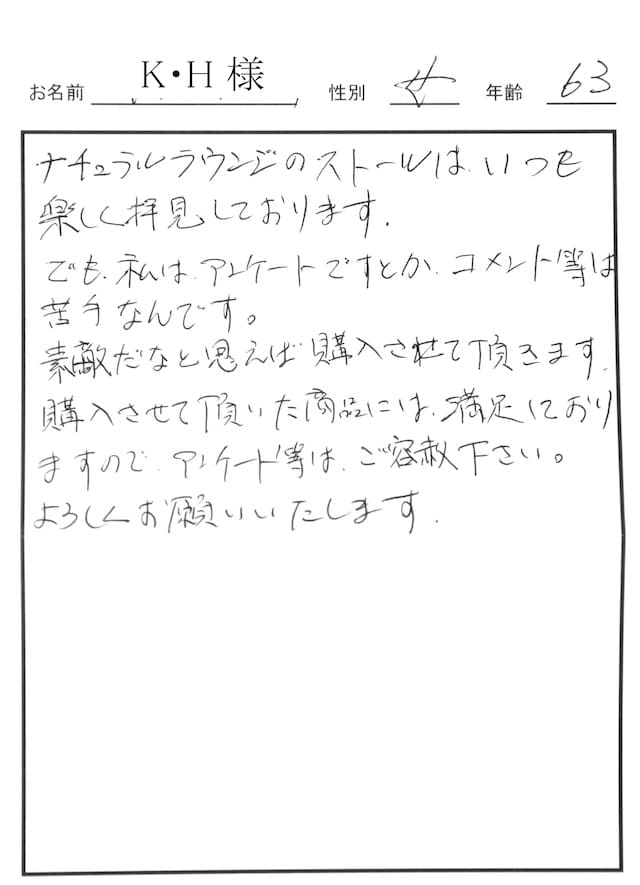 お名前 K・H 様 性別 女 年齢 63
ナチュラルラウンジのストールは、いつも
楽しく拝見しております.
でも、私は、アンケートですとか、コメント等は
苦手なんです。
素敵だなと思えば購入させて頂きます.
購入させて頂いた商品には、満足しており
ますので、アンケート等は、ご容赦下さい。
よろしくお願いいたします.